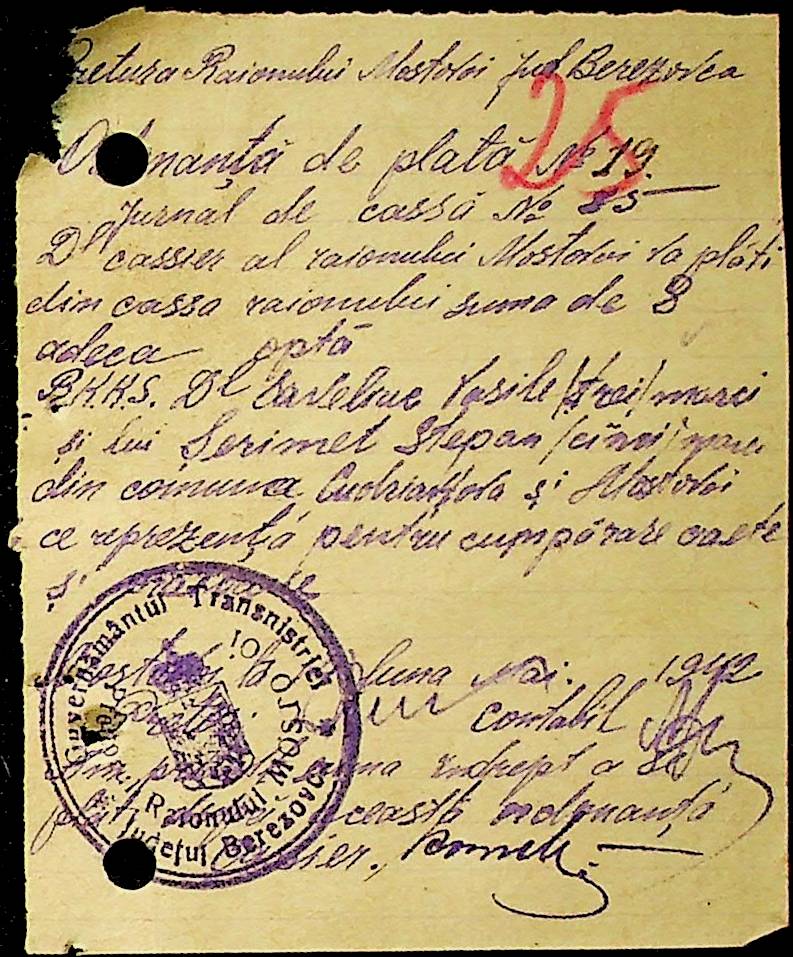 Pretura Raionului Mostovoi jud Berezovca
25
Ordonanță de plată № 19.
Jurnal de cassă № 85
Dl cassier al raionului Mostovoi va plăti
din cassa raionului suma de 8
adeca optă
R.K.K.S. Dl Vasile /trei/ marci
și lui Șerimet Stepan /cinci/ marci
din comuna și Mostovoi
ce reprezență pentru cumpărare oaete
și
la luna Mai. 1942
Pretor. contabil
suma indrept a se
plăti această ordonanță
Cassier,
Guvernământul Transnistriei
Pretura
Raionului Mostovoi
Județul Berezovca